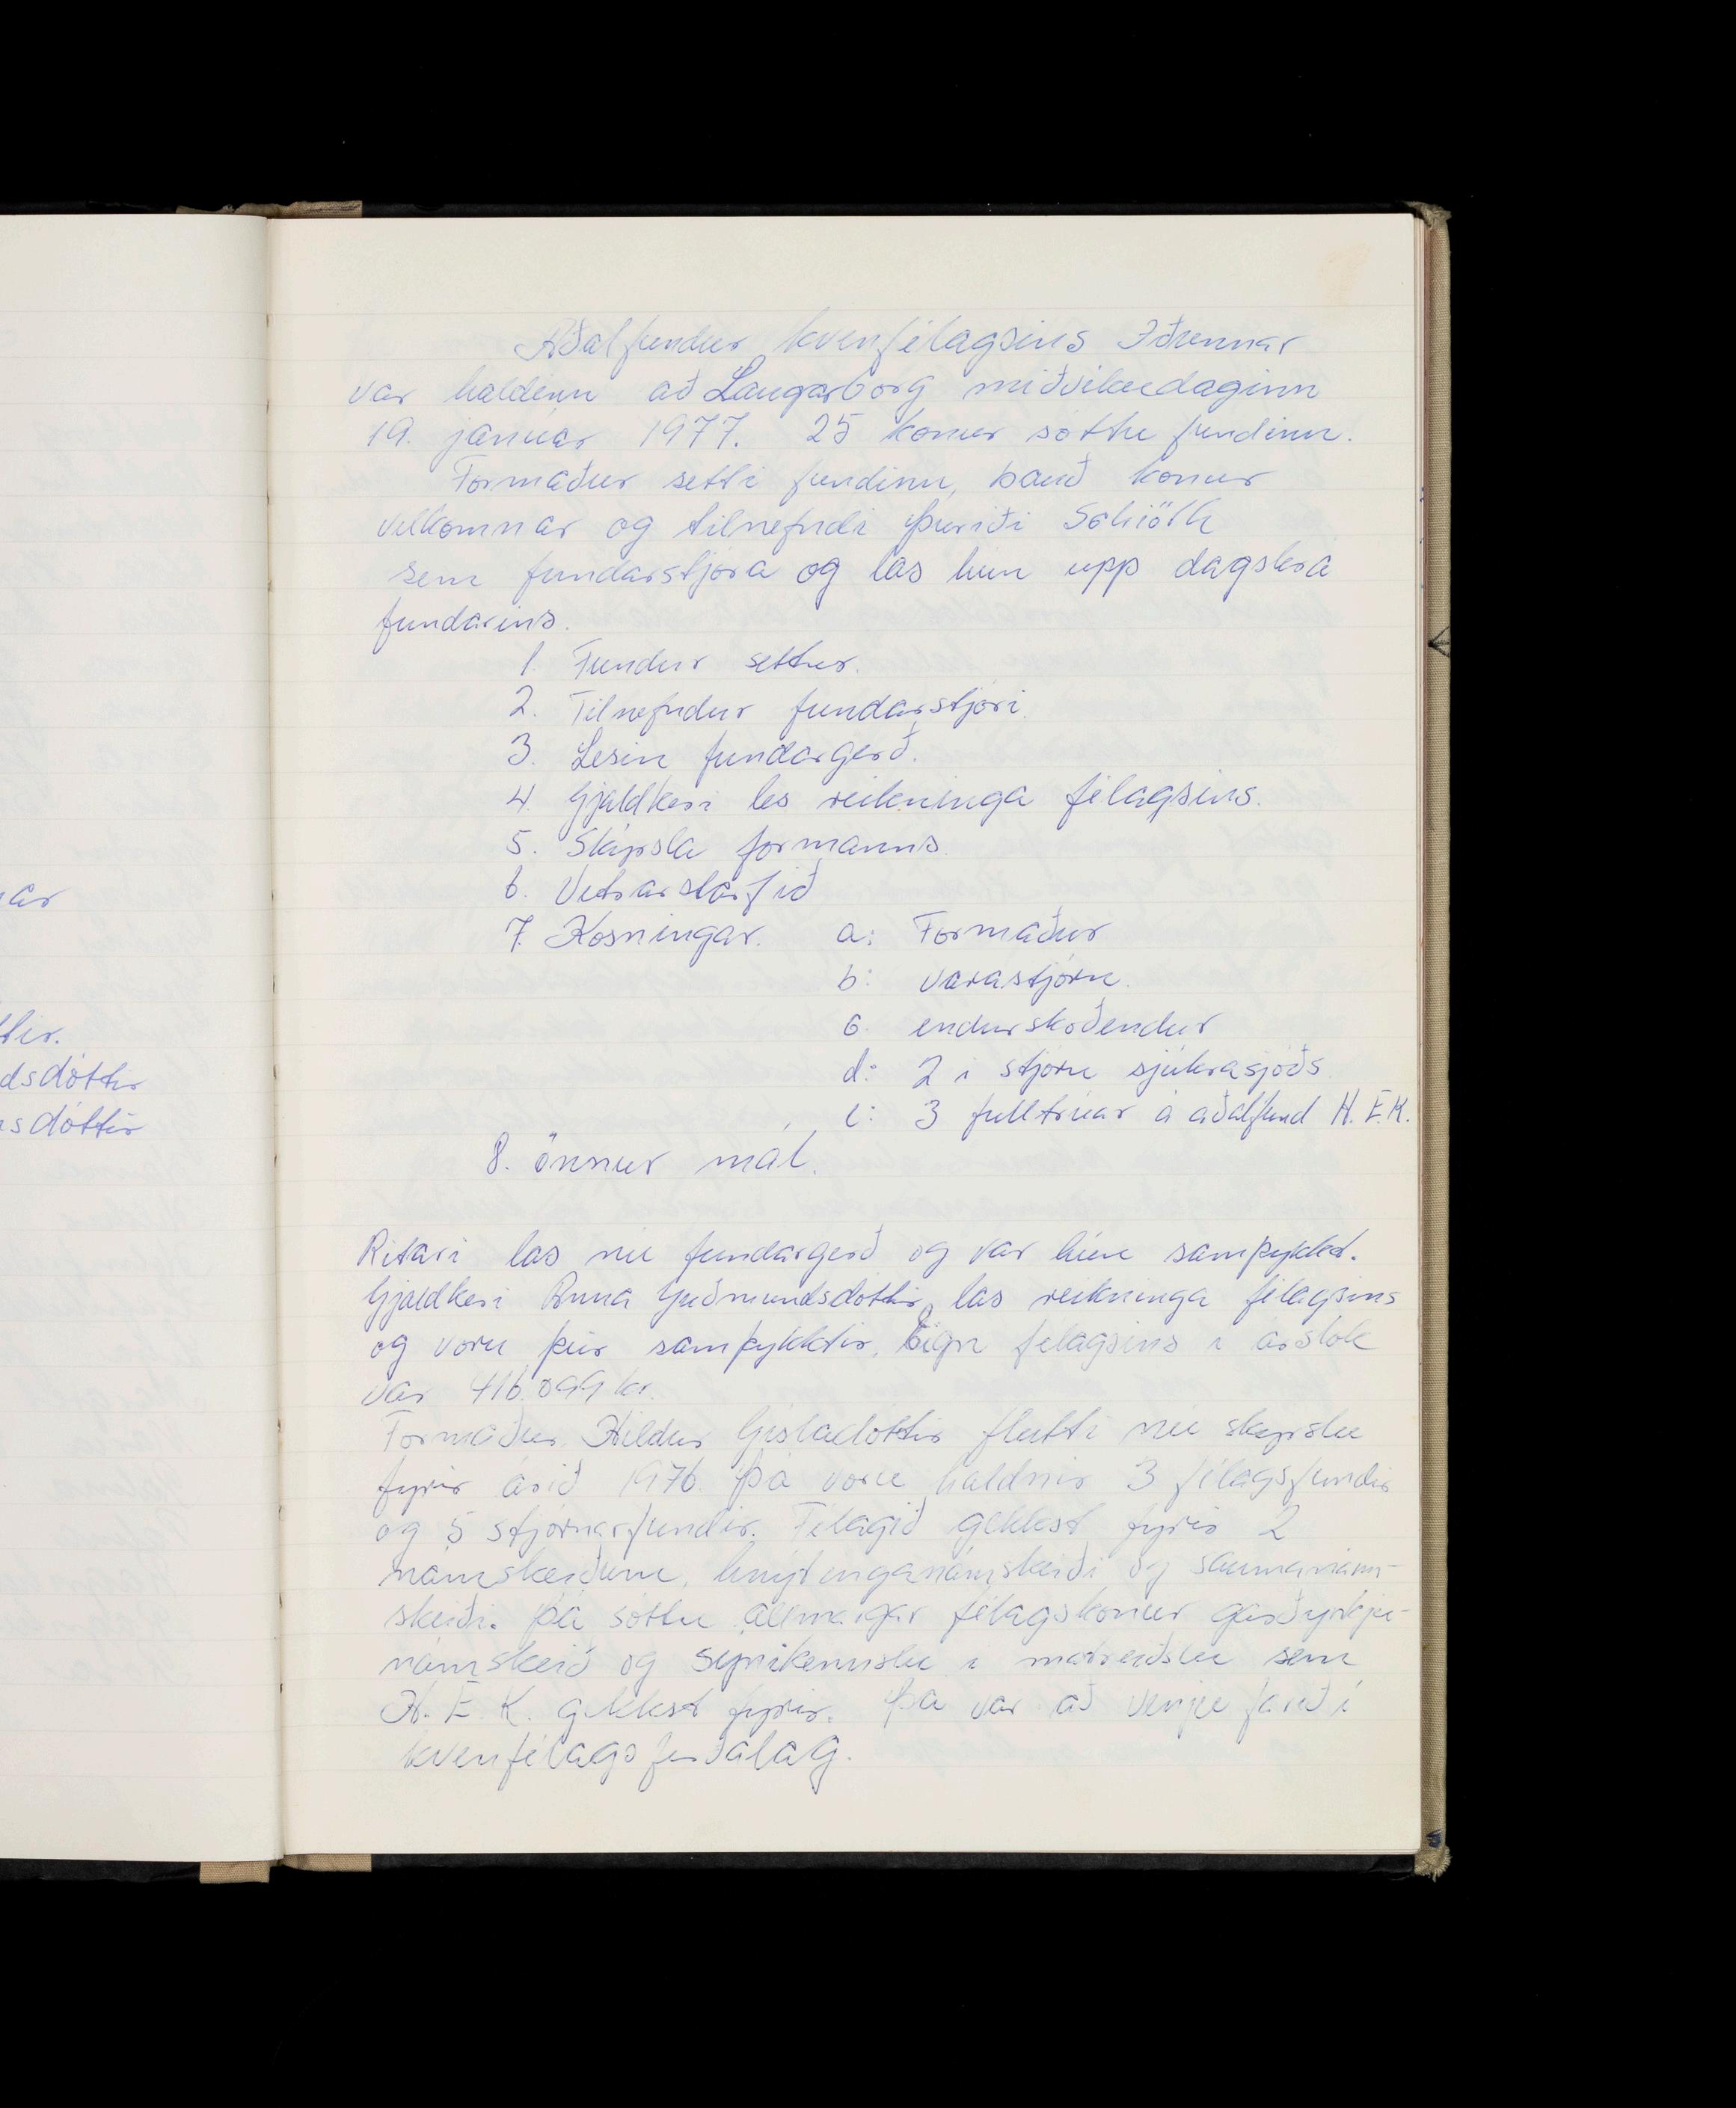 Aðalfundur kvenfélagsins Iðunnar
var haldinn að Laugarborg miðvikudaginn
19. janúar 1977. 25 konur sóttu fundinn.
Formaður setti fundinn, bauð konur
velkomnar og tilnefndi Þuríði Schiöth
sem fundarstjóra og las hún upp dagskrá
fundarins.
1. Fundur settur.
2. Tilnefndur fundarstjóri.
3. Lesin fundargerð.
4. Gjaldkeri les reikninga félagsins.
5. Skýrsla formanns
6. Vetrarstarfið
7. Kosningar. a: Formaður
b: varastjórn.
c. endurskoðendur
d: 2 í stjórn sjúkrasjóðs
e: 3 fulltrúar á aðalfund H.E.K.
8. önnur mál.
Ritari las nú fundargerð og var hún samþykkt.
Gjaldkeri Anna Guðmundsdóttir las reikninga félagsins
og voru þeir samþykktir. Eign félagsins í árslok
var 416.099 kr.
Formaður Hildur Gísladóttir flutti nú skýrslu
fyrir árið 1976. Þá voru haldnir 3 félagsfundir
og 5 stjórnarfundir. Félagið gekkst fyrir 2
námskeiðum, hnýtinganámskeiði og saumanám-
skeiði. Þá sóttu allmargar félagskonur garðyrkju-
námskeið og sýnikennslu í matreiðslu sem
H. E. K. gekkst fyrir. Þá var að venju farið í
kvenfélagsferðalag.
ar
ttir.
dsdóttir
nsdóttir